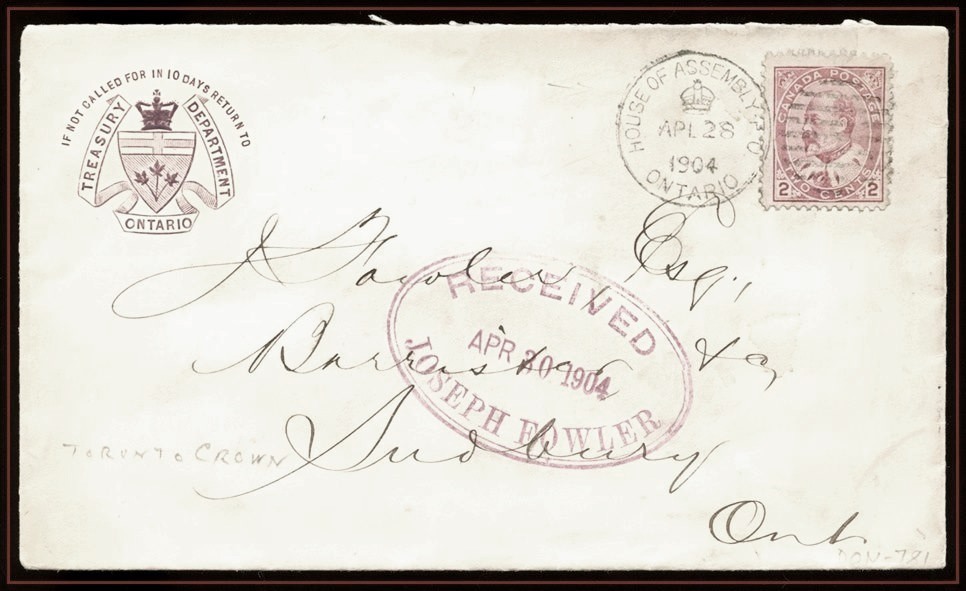 IF NOT CALLED FOR IN 10 DAYS RETURN TO
TREASURY DEPARTMENT
ONTARIO
HOUSE OF ASSEMBLY P.O
APL 28
1904
ONTARIO
CANADA POSTAGE
2 TWO CENTS 2
J Fowler, Esq.,
Barrister &c,
Sudbury
Ont.
RECEIVED
APR 30 1904
JOSEPH FOWLER
TORONTO CROWN